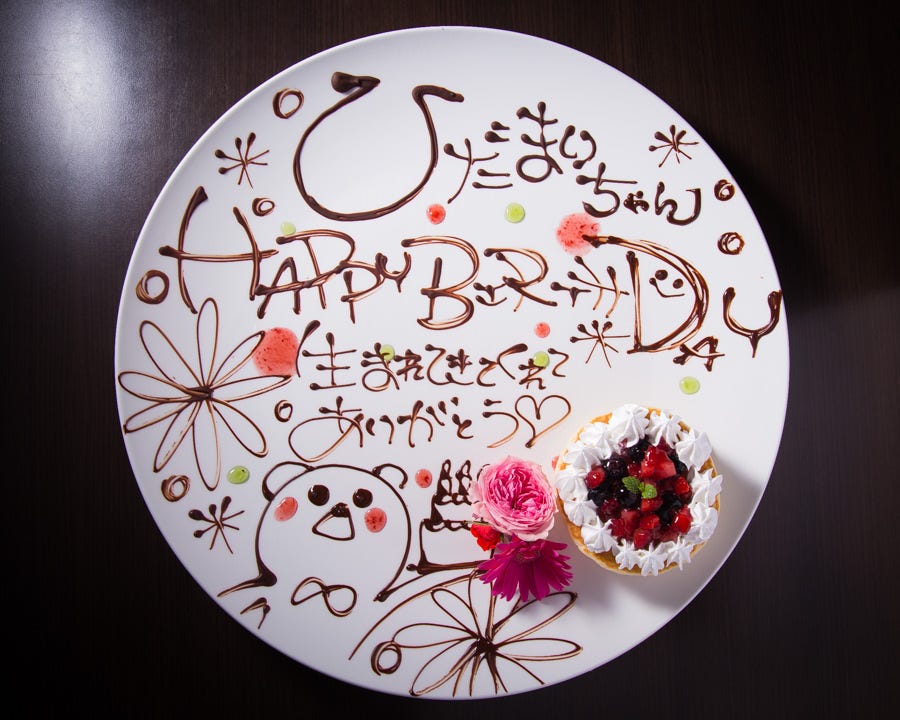 ひたまいちゃん
HAPPY BIRTHDAY
生まれてきてくれて
ありがとう♡